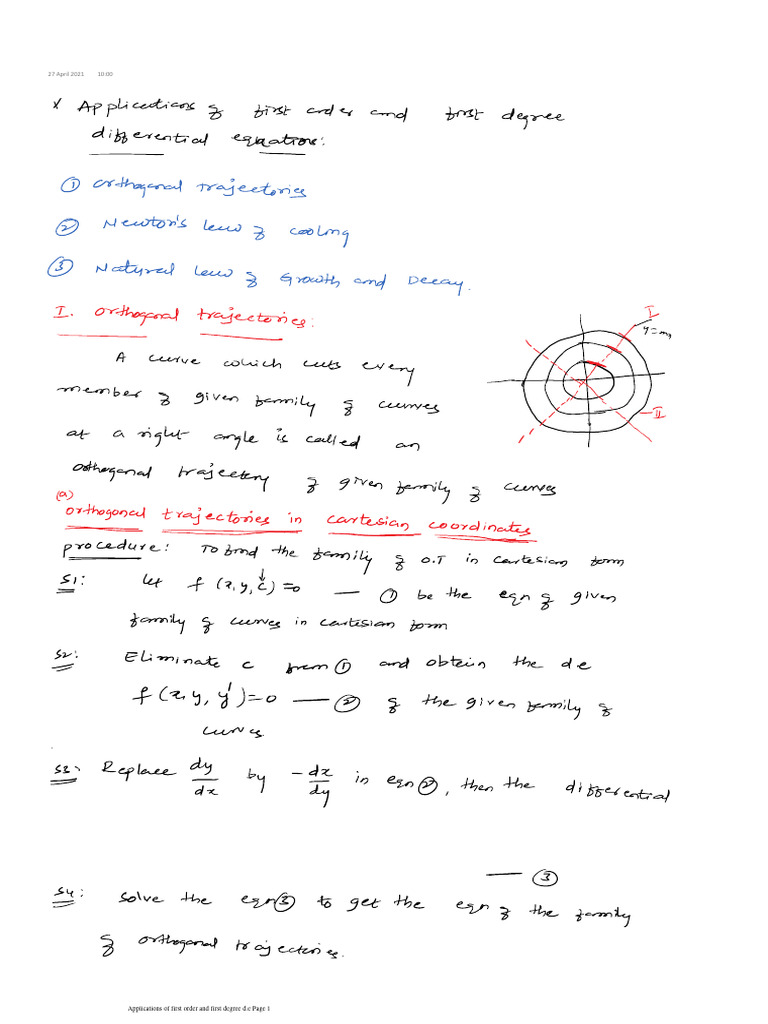 27 April 2021 10:00
x Applications of first order and first degree
differential equations:
① Orthogonal Trajectories
② Newton's law of cooling
③ Natural law of Growth and Decay.
I. Orthogonal trajectories:
I
y=mx
II
A curve which cuts every
member of given family of curves
at a right angle is called an
orthogonal trajectory of given family of curves
(a)
orthogonal trajectories in cartesian coordinates
procedure: To find the family of O.T in cartesian form
S1: let f (x,y,c)=0 — ① be the eqn of given
family of curves in cartesian form
S2: Eliminate c from ① and obtain the d e
f(x,y,y')=0 — ② of the given family of
curves
S3: Replace dy/dx by -dx/dy in eqn ②, then the differential
— ③
S4: solve the eqn ③ to get the eqn of the family
of orthogonal trajectories.
Applications of first order and first degree d.e Page 1